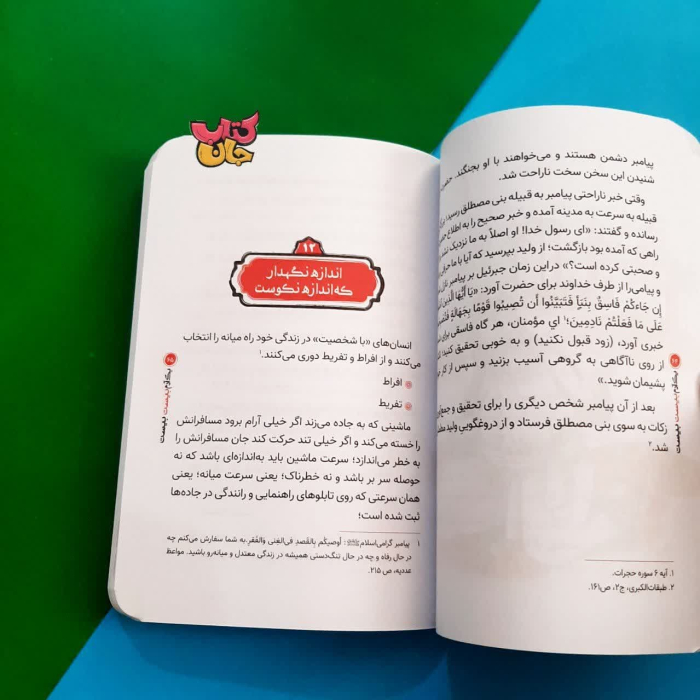 پیامبر دشمن هستند و می‌خواهند با او بجنگند. حضرت
شنیدن این سخن سخت ناراحت شد.
وقتی خبر ناراحتی پیامبر به قبیله بنی مصطلق رسید،
قبیله به سرعت به مدینه آمده و خبر صحیح را به اطلاع
رسانده و گفتند: «ای رسول خدا! او اصلاً به ما نزدیک
راهی که آمده بود بازگشت؛ از ولید بپرسید که آیا با ما
و صحبتی کرده است؟» دراین زمان جبرئیل بر پیامبر
و پیامی‌را از طرف خداوند برای حضرت آورد: «یَا أَیُّهَا الَّذِینَ
إِن جَاءَکُمْ فَاسِقٌ بِنَبَأٍ فَتَبَیَّنُوا أَن تُصِیبُوا قَوْمًا بِجَهَالَةٍ
عَلَی مَا فَعَلْتُمْ نَادِمِینَ؛۱ اي مؤمنان، هر گاه فاسقی برای
خبری آورد، (زود قبول نکنید) و به خوبی تحقیق کنید؛
از روی ناآگاهی به گروهی آسیب بزنید و سپس از کار
پشیمان شوید.»
بعد از آن پیامبر شخص دیگری را برای تحقیق و جمع
زکات به سوی بنی مصطلق فرستاد و از دروغگویي ولید
شد.۲
۱. آیه ۶ سوره حجرات.
۲. طبقات‌الکبری، ج۲، ص۱۶۱.
۶۴
یک قدم بیست بیست
کتاب
جان
۱۲
اندازه نگهدار
که اندازه نکوست
انسان‌های «با شخصیت» در زندگی خود راه میانه را انتخاب
می‌کنند و از افراط و تفریط دوری می‌کنند.۱
افراط
تفریط
ماشینی که به جاده می‌زند اگر خیلی آرام برود مسافرانش
را خسته می‌کند و اگر خیلی تند حرکت کند جان مسافرانش را
به خطر می‌اندازد؛ سرعت ماشین باید به‌اندازه‌ای باشد که نه
حوصله سر بر باشد و نه خطرناک؛ یعنی سرعت میانه؛ یعنی
همان سرعتی که روی تابلوهای راهنمایی و رانندگی در جاده‌ها
ثبت شده است؛
۱ پیامبر گرامی‌اسلام: أوصیکُم بِالقَصدِ فی‌الغِنی وَالفَقرِ.به شما سفارش می‌کنم چه
در حال رفاه و چه در حال تنگ‌دستی همیشه در زندگی معتدل و میانه‌رو باشید. مواعظ
عددیه، ص ۲۱۵.
۶۵